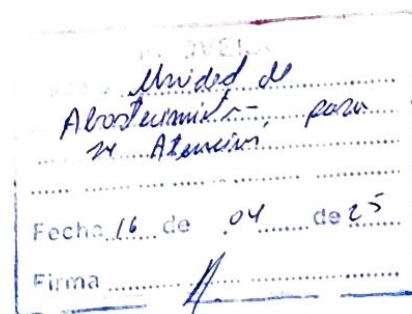 Unidad de
Abastecimiento para
su Atención
Fecha 16 de 04 de 25
Firma